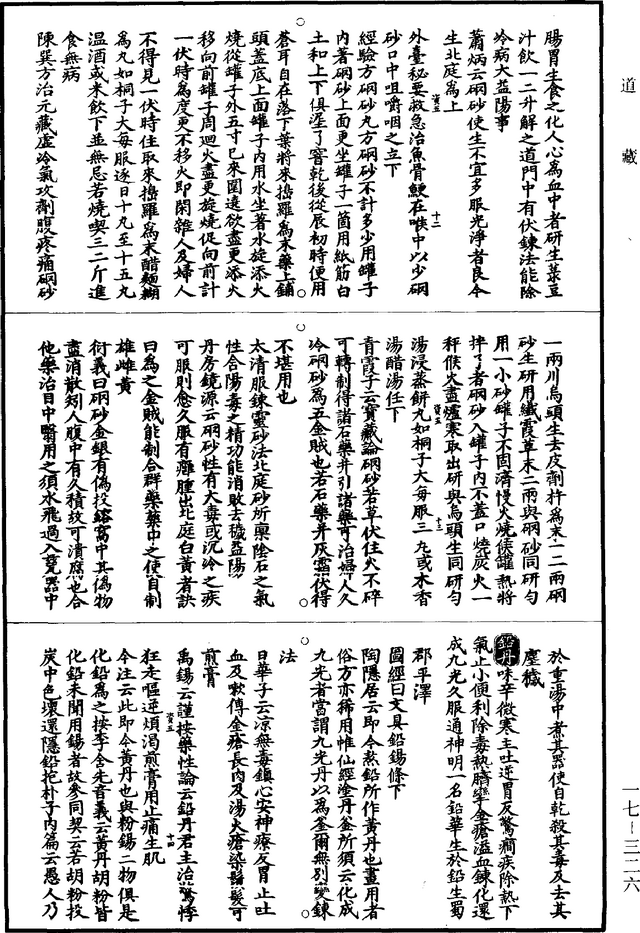 道藏
腸胃生食之化人心為血中者研生菉豆
汁飲一二升解之道門中有伏鍊法能除
冷病大益陽事
蕭炳云硇砂使生不宜多服光淨者良今
生北庭為上
外臺秘要救急治魚骨鯁在喉中以少硇
砂口中咀嚼咽之立下
經驗方硇砂丸方硇砂不計多少用罐子
內著硇砂上面更坐罐子一箇用紙筋白
土和上下俱濕了窨乾後從辰初時便用
蒼耳自在落下葉將來搗羅為末藥上鋪
頭蓋底上面罐子內用水坐著水旋添火
燒從罐子外五寸已來圍遶欲盡更添火
移向前罐子周迴火盡更旋燒促向前計
一伏時為度更不移火即閑雜人及婦人
不得見一伏時住取來搗羅為末醋麵糊
為丸如桐子大每服逐日十丸至十五丸
溫酒或米飲下並無忌若燒喫三二斤進
食無病
陳巽方治元藏虛冷氣攻劑腹疼痛硇砂
一兩川烏頭生去皮劑杵為末一二兩硇
砂生研用纖霞草末二兩與硇砂同研勻
用一小砂罐子不固濟慢火燒候罐熱將
拌了者硇砂入罐子內不蓋口燒炭火一
秤候火盡爐寒取出研與烏頭生同研勻
湯浸蒸餅丸如桐子大每服三丸或木香
湯醋湯任下
青霞子云寶藏論硇砂若草伏住火不碎
可轉制得諸石藥并引諸藥可治婦人久
冷硇砂為五金賊也若石藥并灰霜伏得
不堪用也
太清服鍊靈砂法北庭砂所稟陰石之氣
性含陽毒之精功能消敗去穢益陽
丹房鏡源云硇砂性有大毒或沉冷之疾
可服則愈久服有癰腫出北庭白黃者訣
曰為之金賊能制合群藥藥中之使自制
雄雌黃
衍義曰硇砂金銀有偽投鎔窩中其偽物
盡消散矧人腹中有久積故可潰腐也合
他藥治目中瞖用之須水飛過入瓷器中
於重湯中煮其器使自乾殺其毒及去其
塵穢
鉛丹味辛微寒主吐逆胃反驚癇癲疾除熱下
氣止小便利除毒熱臍攣金瘡溢血鍊化還
成九光久服通神明一名鉛華生於鉛生蜀
郡平澤
圖經曰文具鉛錫條下
陶隱居云即今熬鉛所作黃丹也畫用者
俗方亦稀用惟仙經塗丹釜所須云化成
九光者當謂九光丹以為釜爾無別變鍊
法
日華子云涼無毒鎮心安神療反胃止吐
血及嗽傅金瘡長肉及湯火瘡染鬚髮可
煎膏
禹錫云謹按藥性論云鉛丹君主治驚悸
狂走嘔逆煩渴煎膏用止痛生肌
今注云此即今黃丹也與粉錫二物俱是
化鉛為之按李含光音義云黃丹胡粉皆
化鉛未聞用錫者故參同契云若胡粉投
炭中色壞還隱鉛抱朴子內篇云愚人乃
一七—三二六